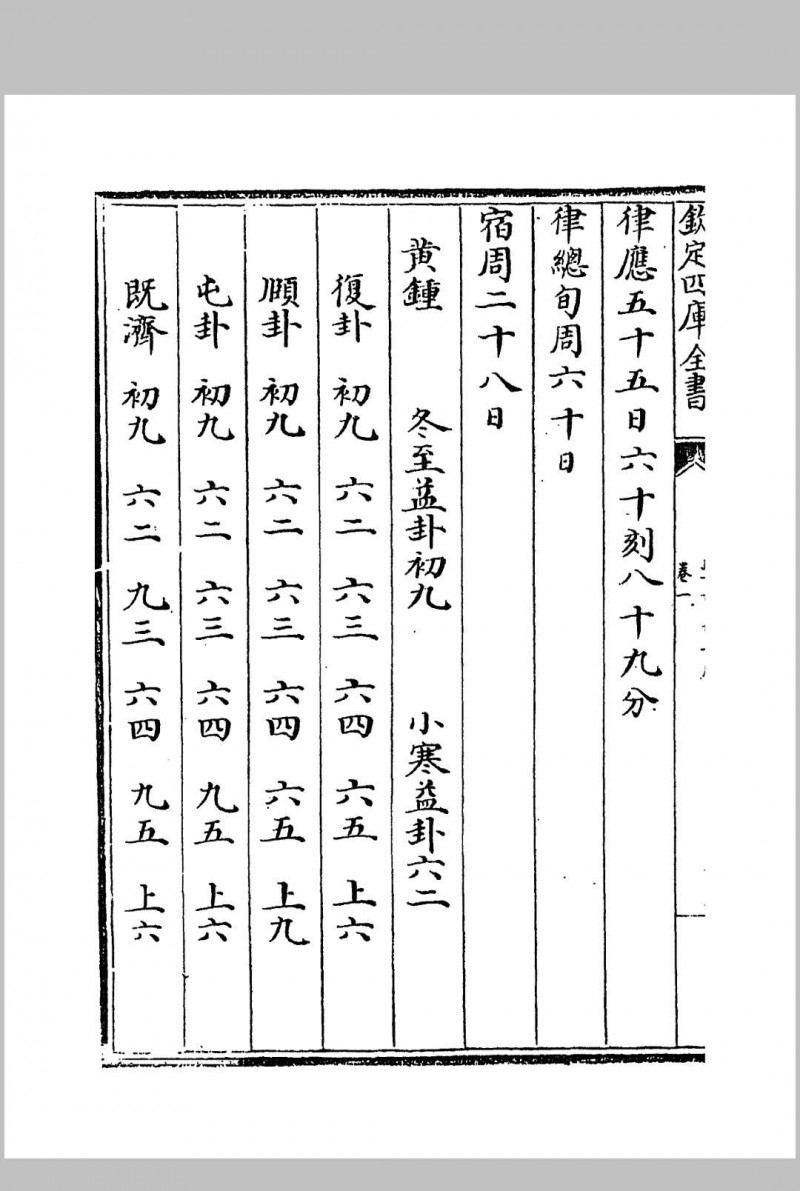 欽定四庫全書
卷一
律應五十五日六十刻八十九分
律總旬周六十日
宿周二十八日
黄鍾 冬至益卦初九 小寒益卦六二
復卦 初九 六二 六三 六四 六五 上六
頤卦 初九 六二 六三 六四 六五 上九
屯卦 初九 六二 六三 六四 九五 上六
既濟 初九 六二 九三 六四 九五 上六